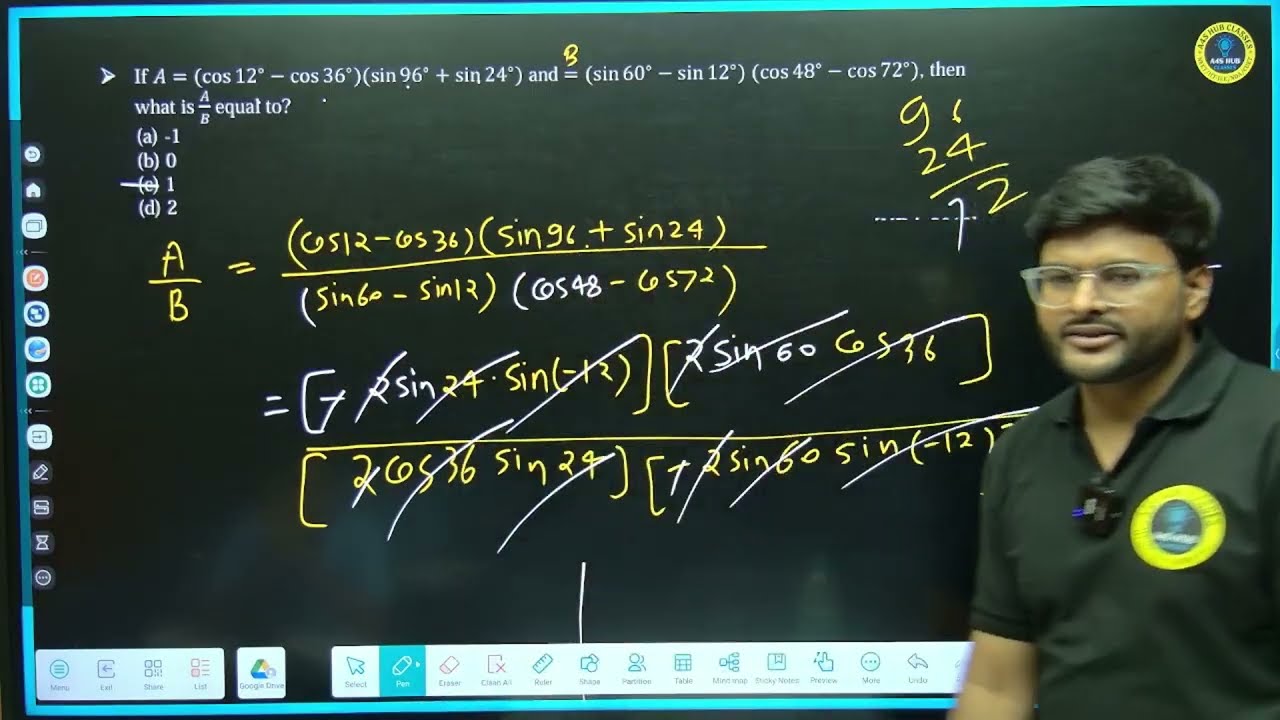 ➤ If A = (cos 12° − cos 36°)(sin 96° + sin 24°) and = (sin 60° − sin 12°) (cos 48° − cos 72°), then
B
what is A/B equal to?
(a) -1
(b) 0
(c) 1
(d) 2
96
24
72
A/B = (cos12-cos36)(sin96+sin24) / (sin60-sin12)(cos48-cos72)
= [-2sin24·sin(-12)][2sin60 cos36] / [2cos36 sin24][-2sin60 sin(-12)
1
A4S HUB CLASSES
A4S HUB
CLASSES
Menu
Exit
Share
List
Google Drive
Select
Pen
Eraser
Clean All
Ruler
Shape
Partition
Table
Mind map
Sticky Notes
Preview
More
Undo